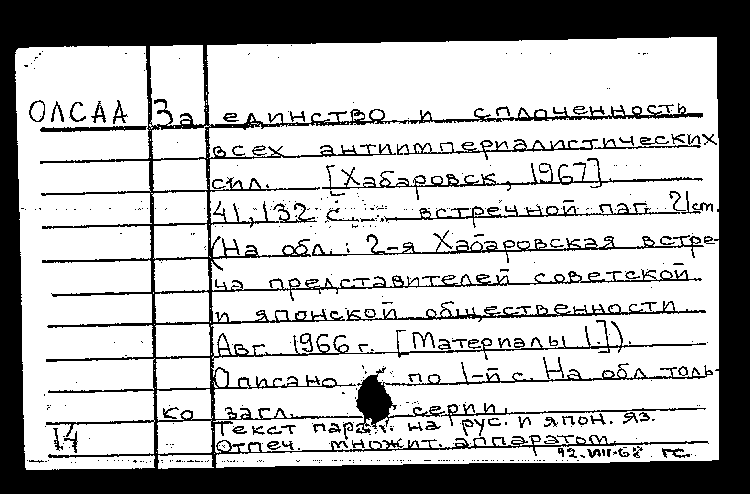 ОЛСАА За единство и сплоченность
всех антиимпериалистических
сил. [Хабаровск, 1967].
41,132 с встречной паг. 21см.
(На обл.: 2-я Хабаровская встре-
ча представителей советской
и японской общественности
Авг. 1966 г. [Материалы 1.]).
Описано по 1-й с. На обл толь-
ко загл. серии.
Текст парал. на рус. и япон. яз.
14 Отпеч. множит. аппаратом.
12.VIII-68 гс.